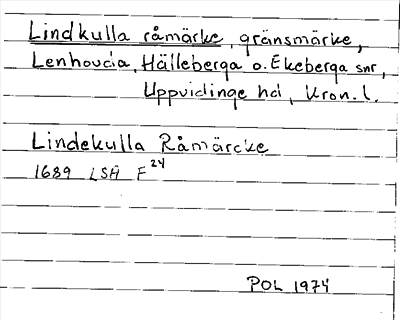 Lindkulla råmärke, gränsmärke,
Lenhovda, Hälleberga o. Ekeberga snr,
Uppvidinge hd, Kron. l.
Lindekulla Råmärcke
1689 LSA F 24
POL 1974